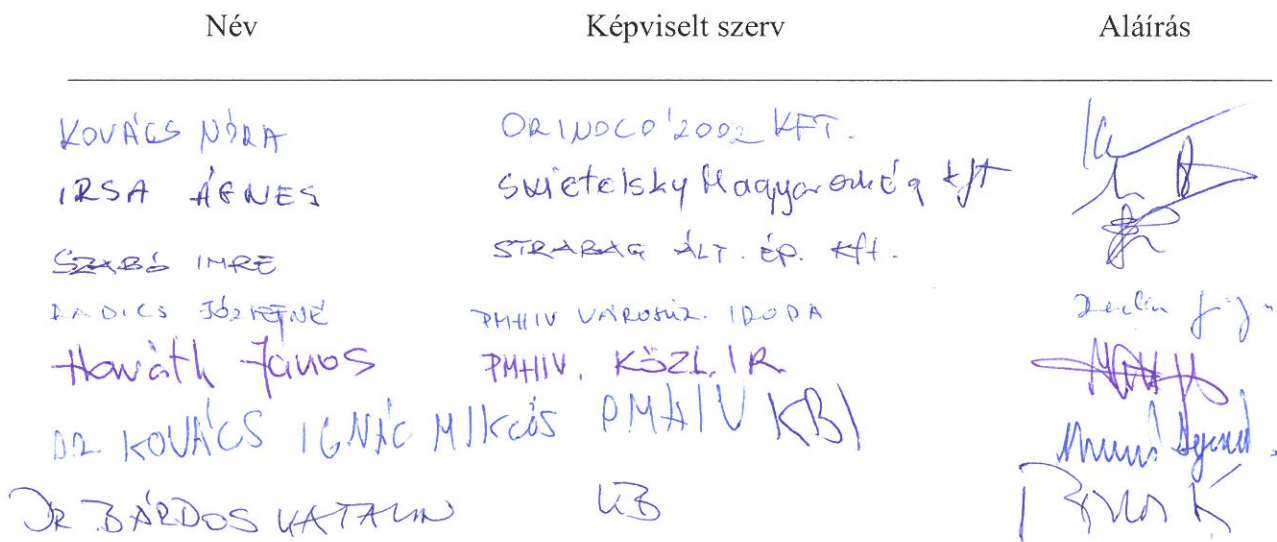 Név Képviselt szerv Aláírás
KOVÁCS NÓRA ORINOCO'2002 KFT.
IRSA ÁGNES Swietelsky Magyarország kft
SZABÓ IMRE STRABAG ÁLT. ÉP. Kft.
RADICS JÓZSEFNÉ PMHIV VÁROSÜZ. IRODA
Horváth János PMHIV. KÖZL. IR.
DR KOVÁCS IGNÁC MIKLÓS PMHIV KBI
DR BÁRDOS KATALIN KB